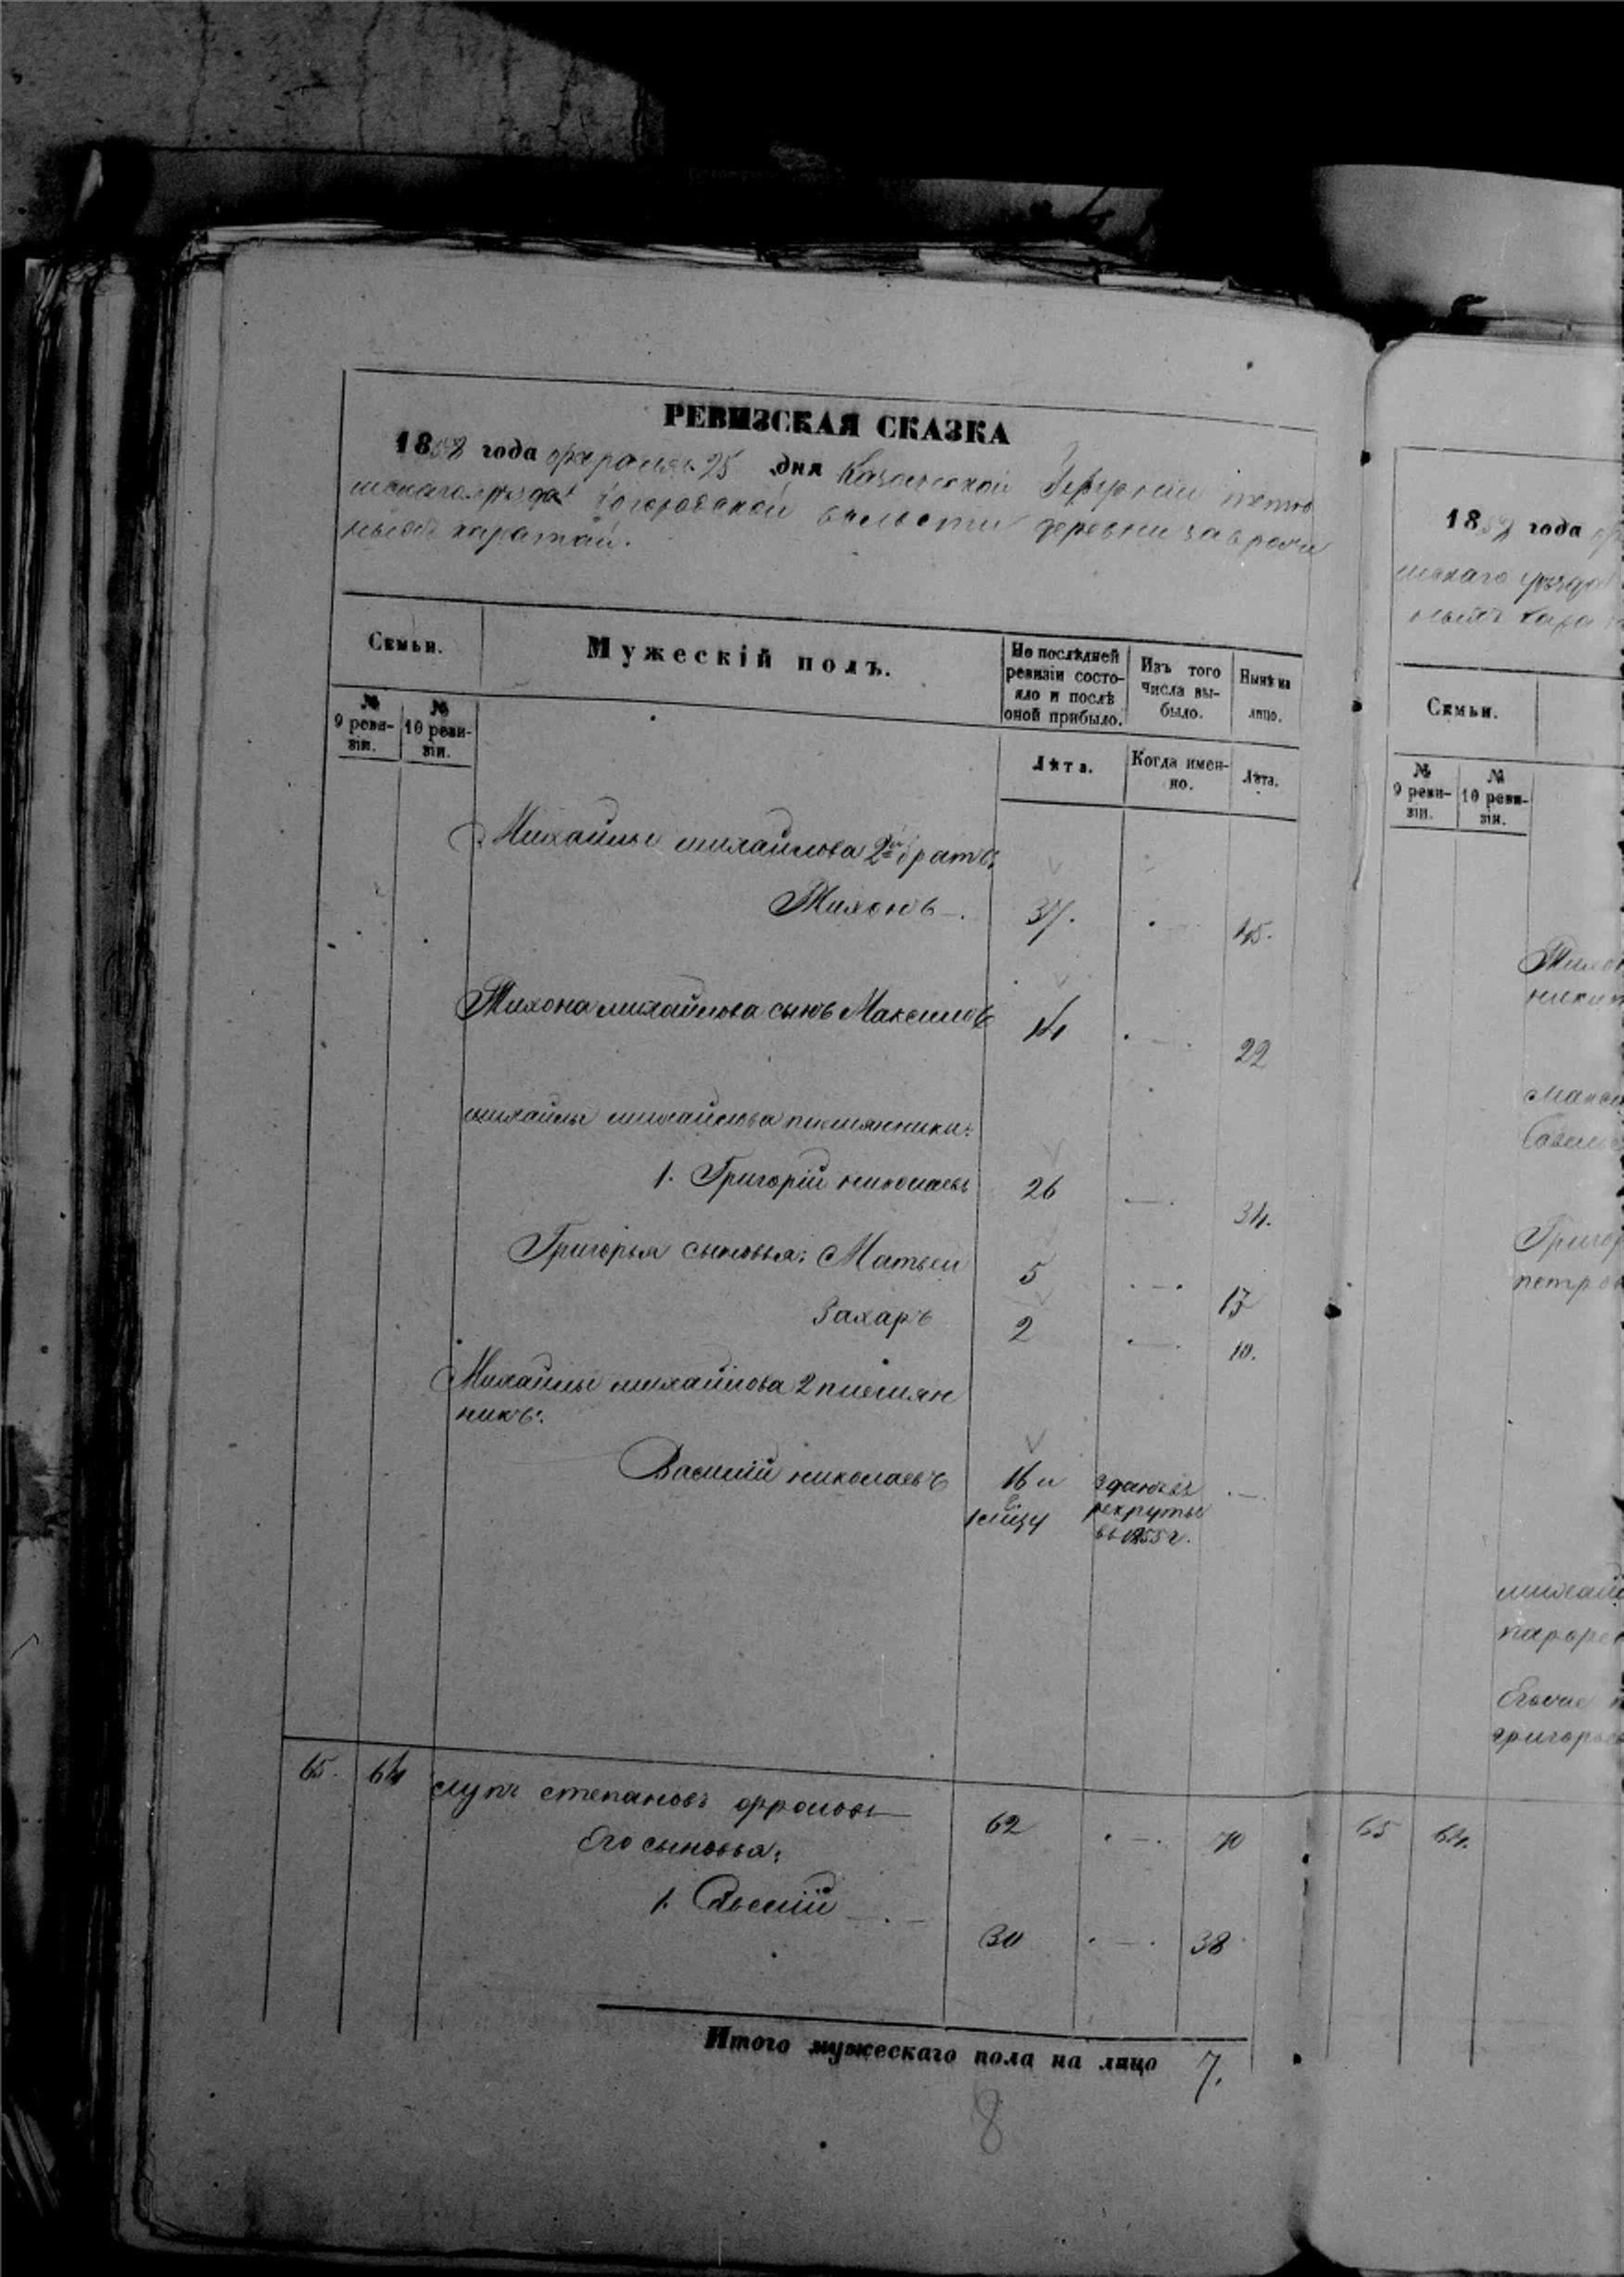 РЕВИЗСКАЯ СКАЗКА
1858 года февраля 25 дня Казанской Губерніи тетю
шскаго уезда Богородской волости деревни заврож
ный каратай.
Семьи.
Мужескій полъ.
По послѣдней ревизіи состояло и послѣ оной прибыло.
Изъ того числа выбыло.
Нынѣ на лицо.
№ 9 ревизіи.
№ 10 ревизіи.
Лѣта.
Когда именно.
Лѣта.
Михайлы михайлова 2й братъ:
Тихонъ —. 37. . — 45.
Тихона михайлова сынъ Максимъ 14 . — . 22
михайлы михайлова племянники:
1. Григорій николаевъ 26 . — . 34.
Григорья сыновья: Матвей 5 . — . 13
Захаръ 2 . — . 10.
Михайлы михайлова 2 племян
никъ:
Василій николаевъ 16 и сданъ въ . —
рекруты
въ 1855 г.
65. 64 степановъ фроловъ — 62 . — . 70
Его сыновья:
1. — . — 30 . — . 38
Итого мужескаго пола на лицо 7.
8
1858 года
шскаго уезда
ный кара
Семьи.
№ 9 ревизіи.
№ 10 ревизіи.
Тихо
Макси
Григор
петров
михай
григорье
65 64.